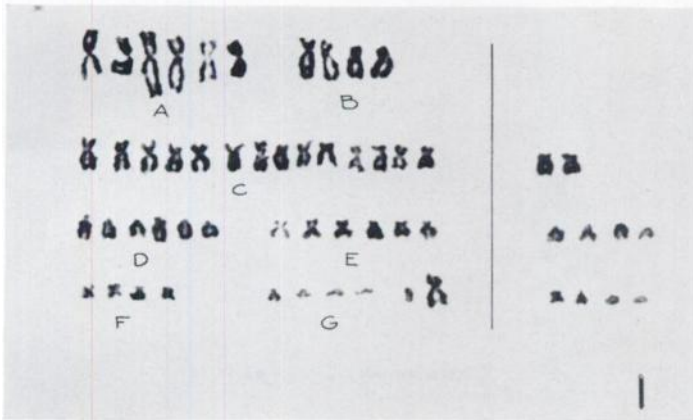 A B
C
D E
F G